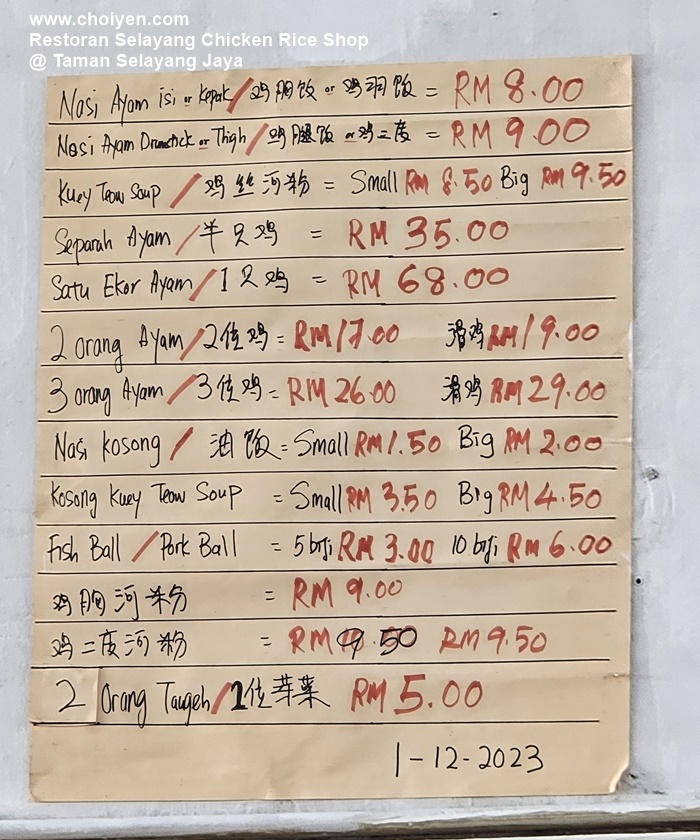 www.choiyen.com
Restoran Selayang Chicken Rice Shop
@ Taman Selayang Jaya
Nasi Ayam isi or Kepak/鸡胸饭 or 鸡翅饭 = RM 8.00
Nasi Ayam Drumstick or Thigh/鸡腿饭 or 鸡二度 = RM 9.00
Kuey Teow Soup / 鸡丝河粉 = Small RM 8.50 Big RM 9.50
Separah Ayam / 半只鸡 = RM 35.00
Satu Ekor Ayam / 1只鸡 = RM 68.00
2 orang Ayam / 2位鸡 = RM 17.00 滑鸡 RM 19.00
3 orang Ayam / 3位鸡 = RM 26.00 滑鸡 RM 29.00
Nasi Kosong / 油饭 = Small RM 1.50 Big RM 2.00
Kosong Kuey Teow Soup = Small RM 3.50 Big RM 4.50
Fish Ball / Pork Ball = 5 biji RM 3.00 10 biji RM 6.00
鸡胸河粉 = RM 9.00
鸡二度河粉 = RM 9.50 RM 9.50
2 Orang Taugeh/2位芽菜 RM 5.00
1-12-2023